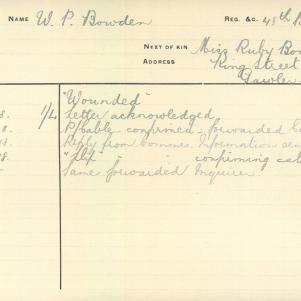 NAME W. P. Bowden REG. &C. 48th B
NEXT OF KIN Miss Ruby Bo
ADDRESS King Street
Gawler
"Wounded"
8. 1/4 Letter acknowledged
8. P/cable confirmed, forwarded Ca
18. Reply from Commdr. Information sen
18. " " confirming cab
Same forwarded Inquirer.